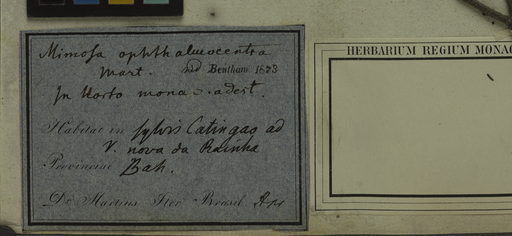 Mimosa ophthalmocentra
Mart. vid Bentham. 1873
In Horto monac. adest.
Habitat in sylvis Catingas ad
V. nova da Rainha
Provinciae Bah.
Dr. Martius Iter Brasil. Apr
HERBARIUM REGIUM MONAC